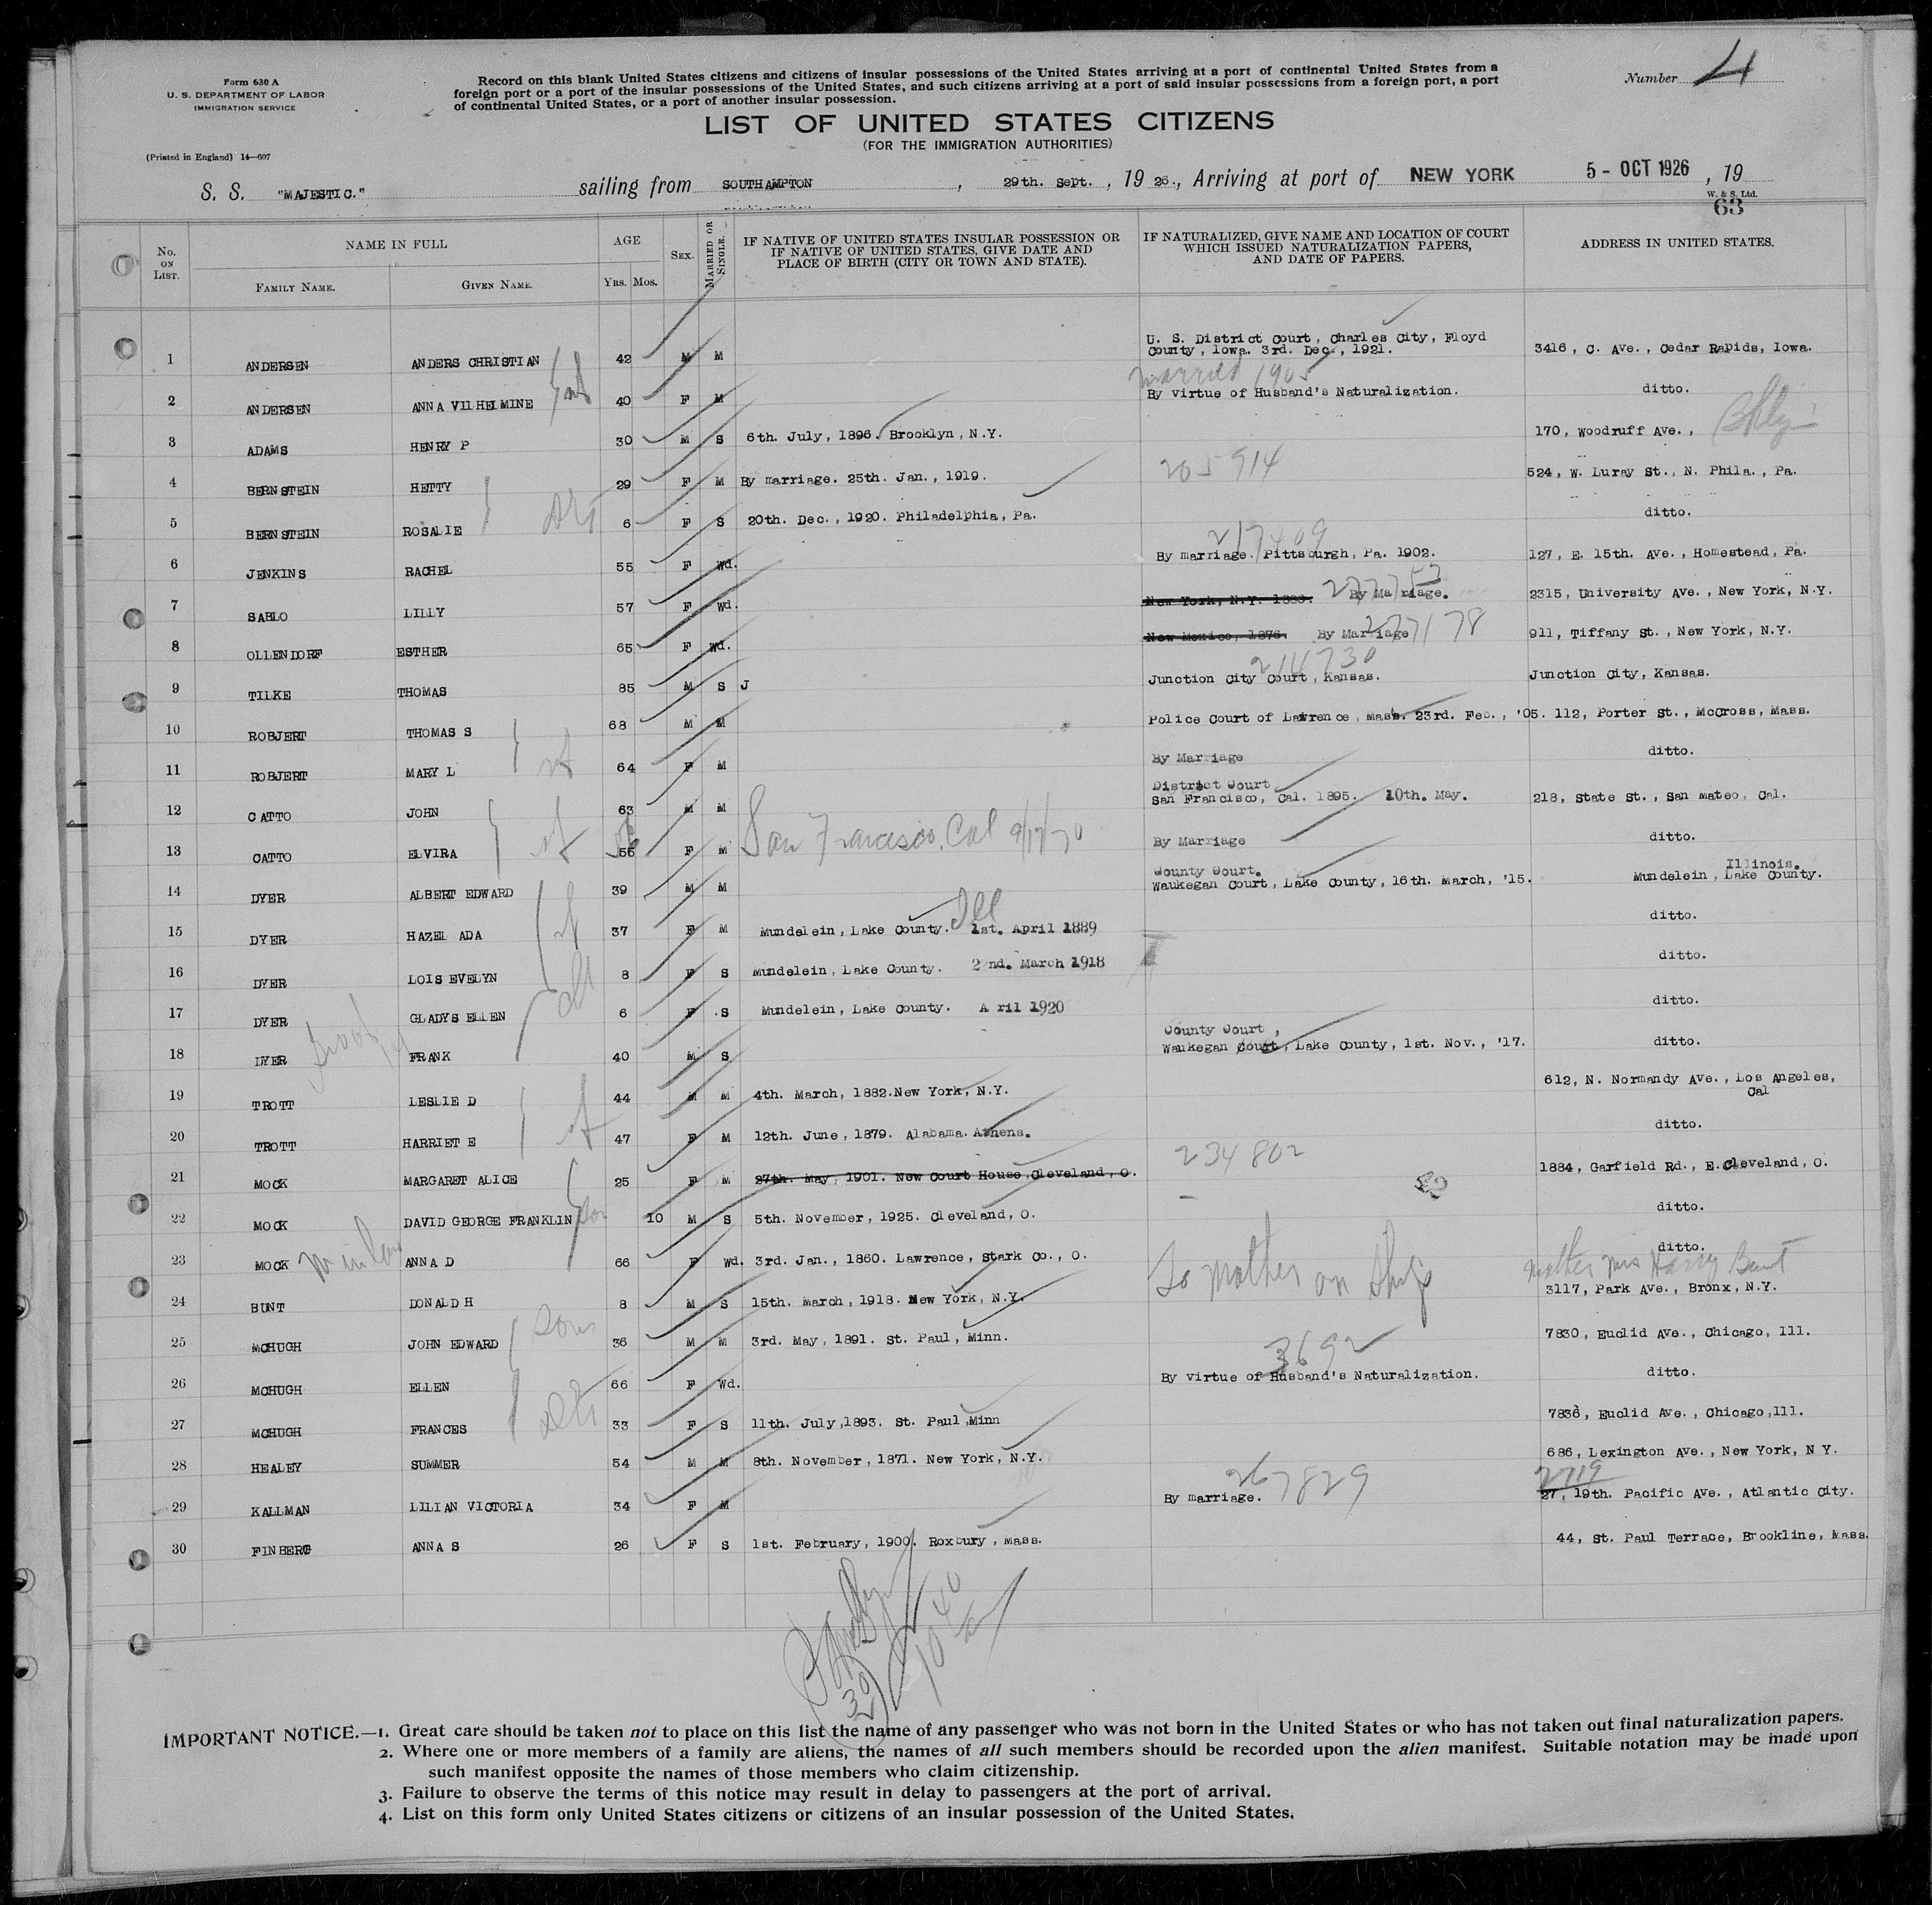 Form 630 A
U. S. DEPARTMENT OF LABOR
IMMIGRATION SERVICE
(Printed in England) 14—607
Record on this blank United States citizens and citizens of insular possessions of the United States arriving at a port of continental United States from a
foreign port or a port of the insular possessions of the United States, and such citizens arriving at a port of said insular possessions from a foreign port, a port
of continental United States, or a port of another insular possession.
Number 4
LIST OF UNITED STATES CITIZENS
(FOR THE IMMIGRATION AUTHORITIES)
S. S. "MAJESTIC." sailing from SOUTHAMPTON, 29th. Sept., 1926., Arriving at port of NEW YORK 5 - OCT 1926, 19
W. & S. Ltd.
63
No. ON LIST. NAME IN FULL FAMILY NAME. GIVEN NAME. AGE YRS. MOS. SEX. MARRIED OR SINGLE. IF NATIVE OF UNITED STATES INSULAR POSSESSION OR IF NATIVE OF UNITED STATES, GIVE DATE AND PLACE OF BIRTH (CITY OR TOWN AND STATE). IF NATURALIZED, GIVE NAME AND LOCATION OF COURT WHICH ISSUED NATURALIZATION PAPERS, AND DATE OF PAPERS. ADDRESS IN UNITED STATES.
1 ANDERSEN ANDERS CHRISTIAN 42 M M U. S. District Court, Charles City, Floyd County, Iowa. 3rd. Dec., 1921. 3416, C. Ave., Cedar Rapids, Iowa.
married 1905
2 ANDERSEN ANNA VILHELMINE 40 F M By virtue of Husband's Naturalization. ditto.
3 ADAMS HENRY P 30 M S 6th. July, 1896. Brooklyn, N.Y. 170, Woodruff Ave., Bklyn
205914
4 BERNSTEIN HETTY 29 F M By marriage. 25th. Jan., 1919. 524, W. Luray St., N. Phila., Pa.
5 BERNSTEIN ROSALIE 6 F S 20th. Dec., 1920. Philadelphia, Pa. ditto.
217409
6 JENKINS RACHEL 55 F Wd. By marriage. Pittsburgh, Pa. 1902. 127, E. 15th. Ave., Homestead, Pa.
7 SABLO LILLY 57 F Wd. New York, N.Y. 1883. By Ma riage. 2315, University Ave., New York, N.Y.
8 OLLENDORF ESTHER 65 F Wd. New Mexico, 1876. By Marriage 227178 911, Tiffany St., New York, N.Y.
214730
9 TILKE THOMAS 85 M S J Junction City Court, Kansas. Junction City, Kansas.
10 ROBJERT THOMAS S 68 M M Police Court of Lawrence, Mass. 23rd. Feb., '05. 112, Porter St., McCross, Mass.
11 ROBJERT MARY L 64 F M By Marriage ditto.
12 CATTO JOHN 63 M M District Court San Francisco, Cal. 1895. 10th. May. 218, State St., San Mateo, Cal.
13 CATTO ELVIRA 56 F M San Francisco, Cal 9/17/70 By Marriage ditto.
14 DYER ALBERT EDWARD 39 M M County Court. Waukegan Court, Lake County, 16th. March, '15. Mundelein, Lake County. Illinois.
15 DYER HAZEL ADA 37 F M Mundelein, Lake County. Ill 1st. April 1889 ditto.
16 DYER LOIS EVELYN 8 F S Mundelein, Lake County. 2nd. March 1918 ditto.
17 DYER GLADYS ELLEN 6 F S Mundelein, Lake County. A ril 1920 ditto.
18 DYER FRANK 40 M S County Court, Waukegan Court, Lake County, 1st. Nov., '17. ditto.
19 TROTT LESLIE D 44 M M 4th. March, 1882. New York, N.Y. 612, N. Normandy Ave., Los Angeles, Cal
20 TROTT HARRIET E 47 F M 12th. June, 1879. Alabama. Athens. ditto.
234802
21 MOCK MARGARET ALICE 25 F M 27th. May, 1901. New Court House, Cleveland, O. 1884, Garfield Rd., E.Cleveland, O.
22 MOCK DAVID GEORGE FRANKLIN son 10 M S 5th. November, 1925. Cleveland, O. ditto.
23 MOCK ANNA D 66 F Wd. 3rd. Jan., 1860. Lawrence, Stark Co., O. ditto.
To Mother on Ship mother Mrs Harry Bunt
24 BUNT DONALD H 8 M S 15th. March, 1918. New York, N.Y. 3117, Park Ave., Bronx, N.Y.
25 MCHUGH JOHN EDWARD son 36 M M 3rd. May, 1891. St. Paul, Minn. 7830, Euclid Ave., Chicago, Ill.
3692
26 MCHUGH ELLEN 66 F Wd. By virtue of Husband's Naturalization. ditto.
27 MCHUGH FRANCES 33 F S 11th. July, 1893. St. Paul, Minn 7836, Euclid Ave., Chicago, Ill.
28 HEALEY SUMMER 54 M M 8th. November, 1871. New York, N.Y. 686, Lexington Ave., New York, N Y.
267829 2719
29 KALLMAN LILIAN VICTORIA 34 F M By marriage. 27, 19th. Pacific Ave., Atlantic City.
30 FINBERG ANNA S 26 F S 1st. February, 1900. Roxbury, Mass. 44, St. Paul Terrace, Brookline, Mass.
10 40
IMPORTANT NOTICE.—1. Great care should be taken not to place on this list the name of any passenger who was not born in the United States or who has not taken out final naturalization papers.
2. Where one or more members of a family are aliens, the names of all such members should be recorded upon the alien manifest. Suitable notation may be made upon
such manifest opposite the names of those members who claim citizenship.
3. Failure to observe the terms of this notice may result in delay to passengers at the port of arrival.
4. List on this form only United States citizens or citizens of an insular possession of the United States.